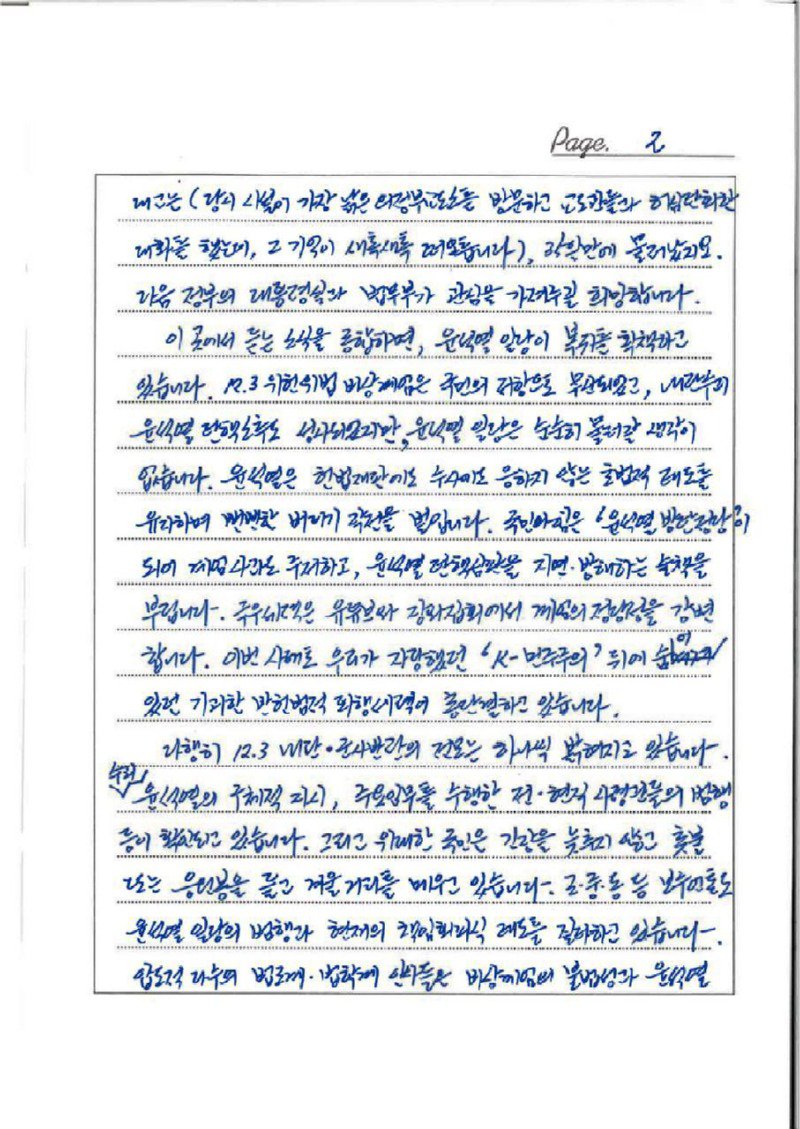 Page. 2
내고는 (당시 시설이 가장 낡은 의정부교도소를 방문하고 교도관들과 허심탄회한
대화를 했는데, 그 기억이 새록새록 떠오릅니다), 35일만에 물러났지요.
다음 정부의 대통령실과 법무부가 관심을 가져주길 희망합니다.
이 곳에서 듣는 소식을 종합하면, 윤석열 일당이 복귀를 획책하고
있습니다. 12.3 위헌위법 비상계엄은 국민의 저항으로 무산되었고, 내란수괴
윤석열 탄핵소추도 성사되었지만, 윤석열 일당은 순순히 물러갈 생각이
없습니다. 윤석열은 헌법재판에도 수사에도 응하지 않는 초법적 태도를
유지하며 뻔뻔한 버티기 작전을 벌입니다. 국민의힘은 '윤석열 방탄정당'이
되어 계엄 사과도 주저하고, 윤석열 탄핵심판을 지연·방해하는 술책을
부립니다. 극우세력은 유튜브와 장외집회에서 계엄의 정당성을 강변
합니다. 이번 사태로 우리가 자랑했던 'K-민주주의' 뒤에 숨어
있던 기괴한 반헌법적 퇴행세력이 총단결하고 있습니다.
다행히 12.3 내란·군사반란의 전모는 하나씩 밝혀지고 있습니다.
수괴
윤석열의 구체적 지시, 주요임무를 수행한 전·현직 사령관들의 범행
등이 확인되고 있습니다. 그리고 위대한 국민은 긴장을 늦추지 않고 촛불
또는 응원봉을 들고 겨울 거리를 메우고 있습니다. 조·중·동 등 보수언론도
윤석열 일당의 범행과 현재의 책임회피식 태도를 질타하고 있습니다.
압도적 다수의 법조계·법학계 인사들은 비상계엄의 불법성과 윤석열